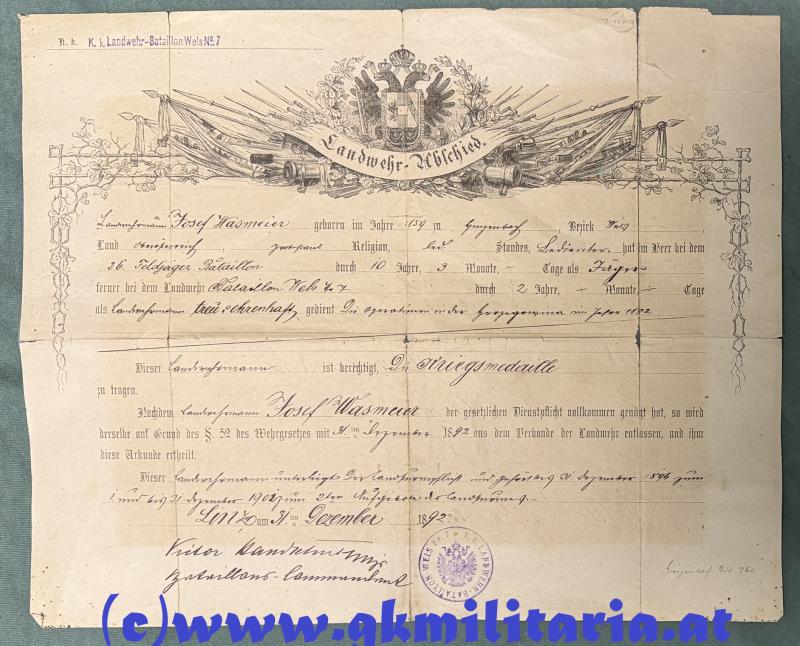 K. k. K. k. Landwehr-Bataillon Wels No. 7
Landwehr-Abschied.
Landwehrmann Josef Wasmeier geboren im Jahre 1859 zu Bezirk Wels,
Land Religion, led. Standes, Bedienter, hat im Heer bei dem
26. Feldjäger Bataillon durch 10 Jahre, 3 Monate, - Tage als Jäger
ferner bei dem Landwehr Bataillon Wels No 7 durch 2 Jahre, - Monate - Tage
als Landwehrmann treu u. ehrenhaft, gedient Die Operationen in der Herzegowina im Jahre 1882
Dieser Landwehrmann ist berechtigt, Die Kriegsmedaille
zu tragen.
Nachdem Landwehrmann Josef Wasmeier der gesetzlichen Dienstpflicht vollkommen genügt hat, so wird
derselbe auf Grund des §. 52 des Wehrgesetzes mit 31ten Dezember 1892 aus dem Verbande der Landwehr entlassen, und ihm
diese Urkunde ertheilt.
Dieser Landwehrmann unterliegt der Landsturmpflicht und gehört bis 31 Dezember 1896 zum
1 und bis 31 Dezember 1902 zum 2ten Aufgebote des Landsturmes.-
Linz am 31ten Dezember 1892
Victor
Bataillons-Commandant
K.K. LANDWEHR-BATAILLON WELS Nr. 7
(c)www.gkmilitaria.at